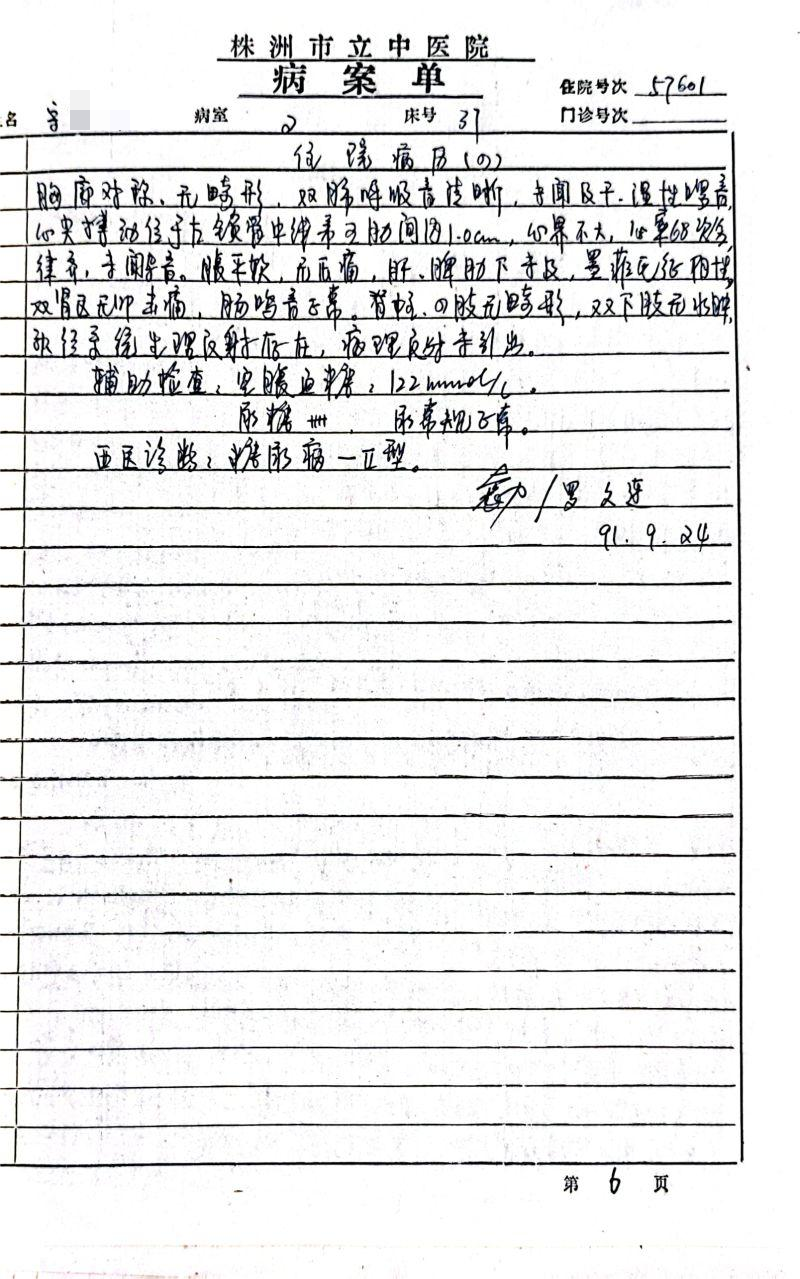 株洲市立中医院
病案单
住院号次 57601
名 病室 2 床号 37 门诊号次
住院病历(四)
胸廓对称、无畸形，双肺呼吸音清晰，未闻及干、湿性啰音，
心尖搏动位于左锁骨中线第五肋间内1.0cm，心界不大，心率68次/分，
律齐，未闻杂音。腹平软，无压痛，肝、脾肋下未及，墨菲氏征阴性，
双肾区无叩击痛，肠鸣音正常。脊柱、四肢无畸形，双下肢无水肿，
神经系统生理反射存在，病理反射未引出。
辅助检查：空腹血糖：122mmol/L。
尿糖 ++++ 尿常规正常。
西医诊断：糖尿病—Ⅱ型。
/罗文连
91.9.24
第 6 页